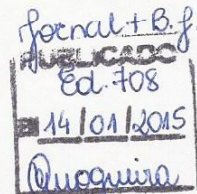 Jornal + B.J.
PUBLICADO
Ed. 708
14/01/2015